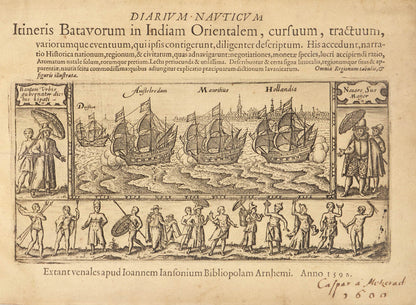 DIARIVM NAVTICVM
Itineris Batavorum in Indiam Orientalem, cursuum, tractuum,
variorumque eventuum, qui ipsis contigerunt, diligenter descriptum. His accedunt, narra-
tio Historica nationum, regionum, & civitatum, quas adnavigarunt: negotiationes, monetæ species, lucri accipiendi ratio,
Animatum natale solum, eorumque pretium. Lectu periucunda & utilissima. Describuntur & certa signa littoralia, regionumque situs & ap-
parentia, nautis scitu commodissima: quibus adiungitur explicatio præcipuarum dictionum Iavanicarum.
Omnia Regionum tabulis, &
figuris illustrata.
Bantam Urbis
gubernator
Duifken
Amsteredam
Mauritius
Hollandia
Navarc. Sive
Extant venales apud Ioannem Iansonium Bibliopolam Arnhemi. Anno 159
Caspar a
1600